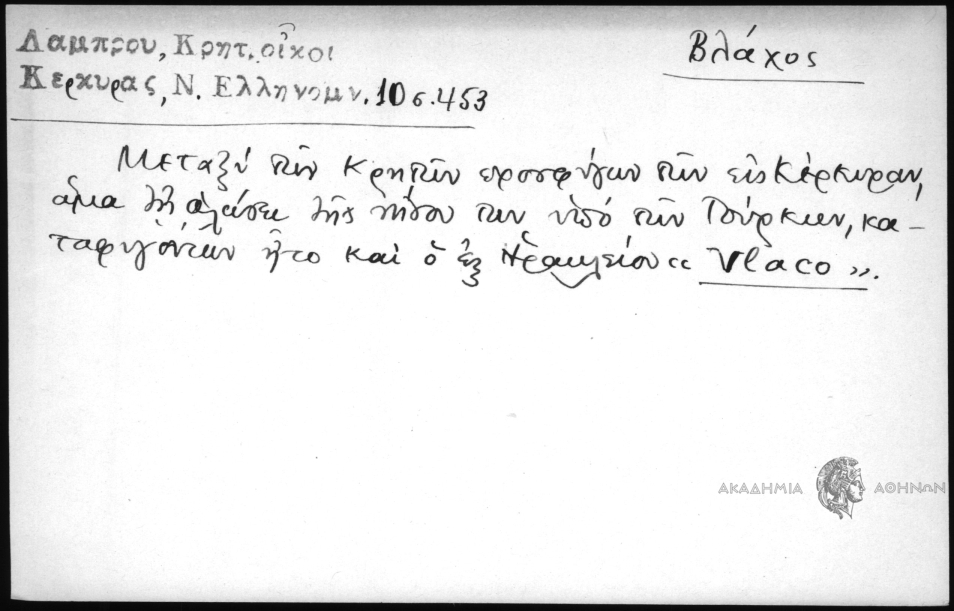 Λαμπρου, Κρητ. οἶκοι
Κερκυρας, Ν. Ελληνομν. 10 σ. 453
Βλάχος
Μεταξύ τῶν Κρητῶν προσφύγων τῶν εἰς Κέρκυραν,
ἅμα τῇ ἁλώσει τῆς νήσου των ὑπό τῶν Τούρκων, κα-
ταφυγόντων ἦτο καὶ ὁ ἐξ Ἡρακλείου « Vlaco ».
ΑΚΑΔΗΜΙΑ ΑΘΗΝΩΝ